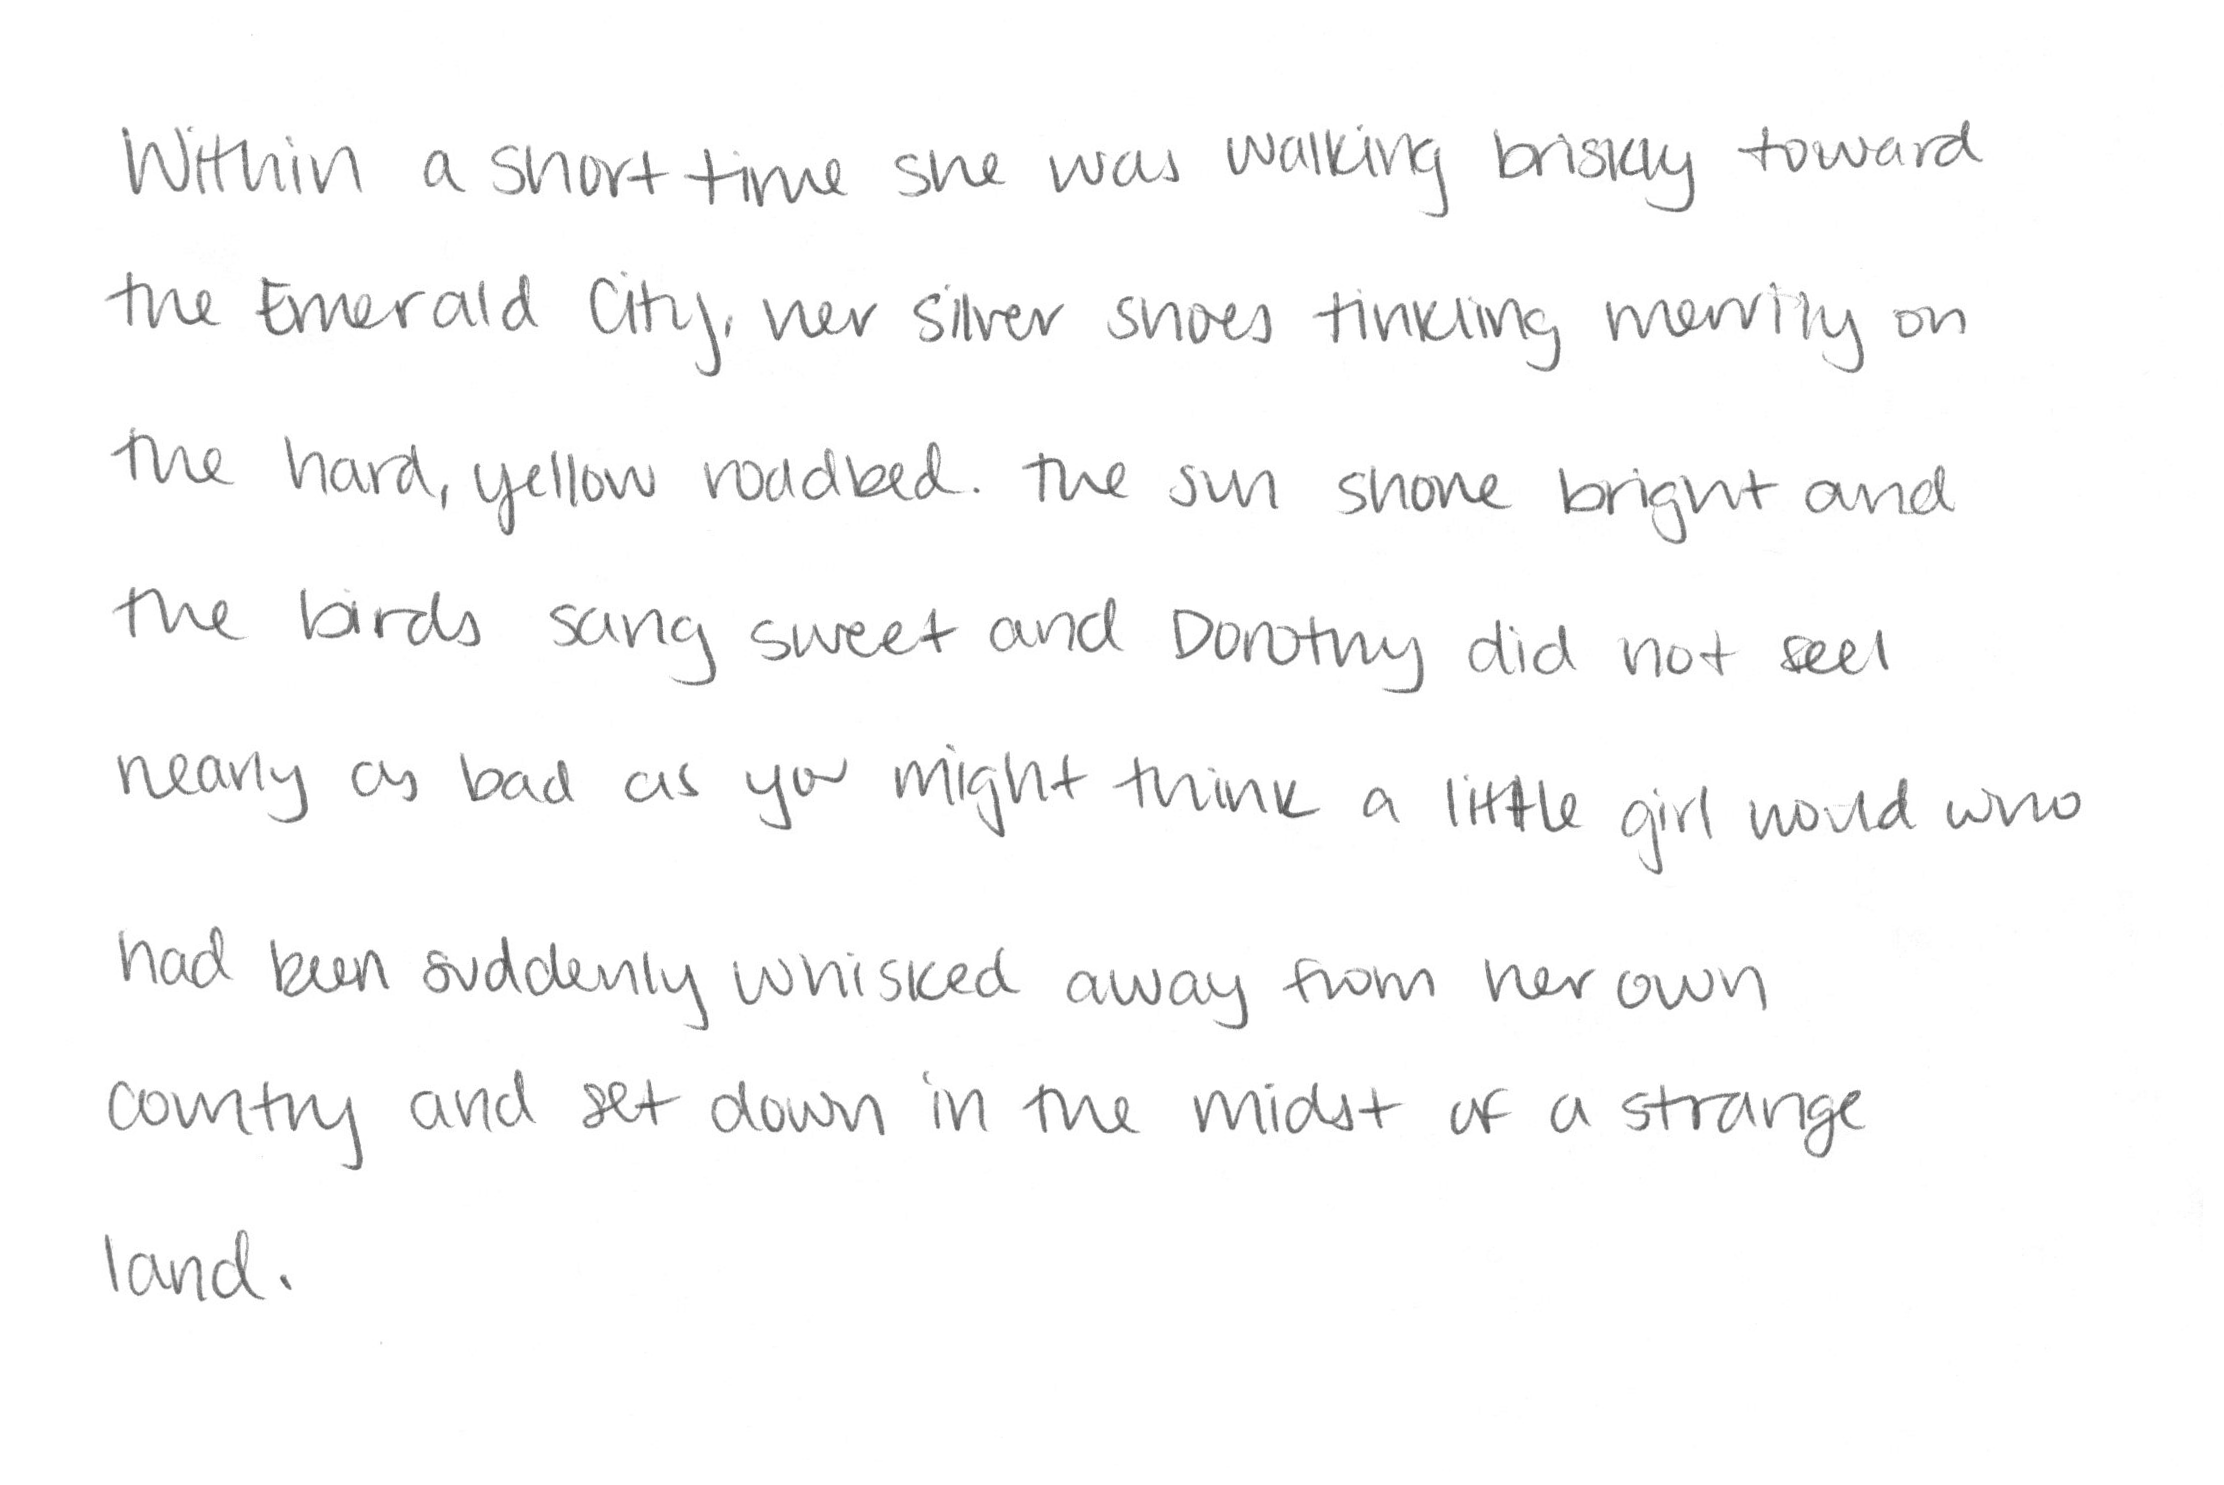 Within a short time she was walking briskly toward
the Emerald City, her silver shoes tinkling merrily on
the hard, yellow roadbed. The sun shone bright and
the birds sang sweet and Dorothy did not seel
nearly as bad as you might think a little girl would who
had been suddenly whisked away from her own
country and set down in the midst of a strange
land.